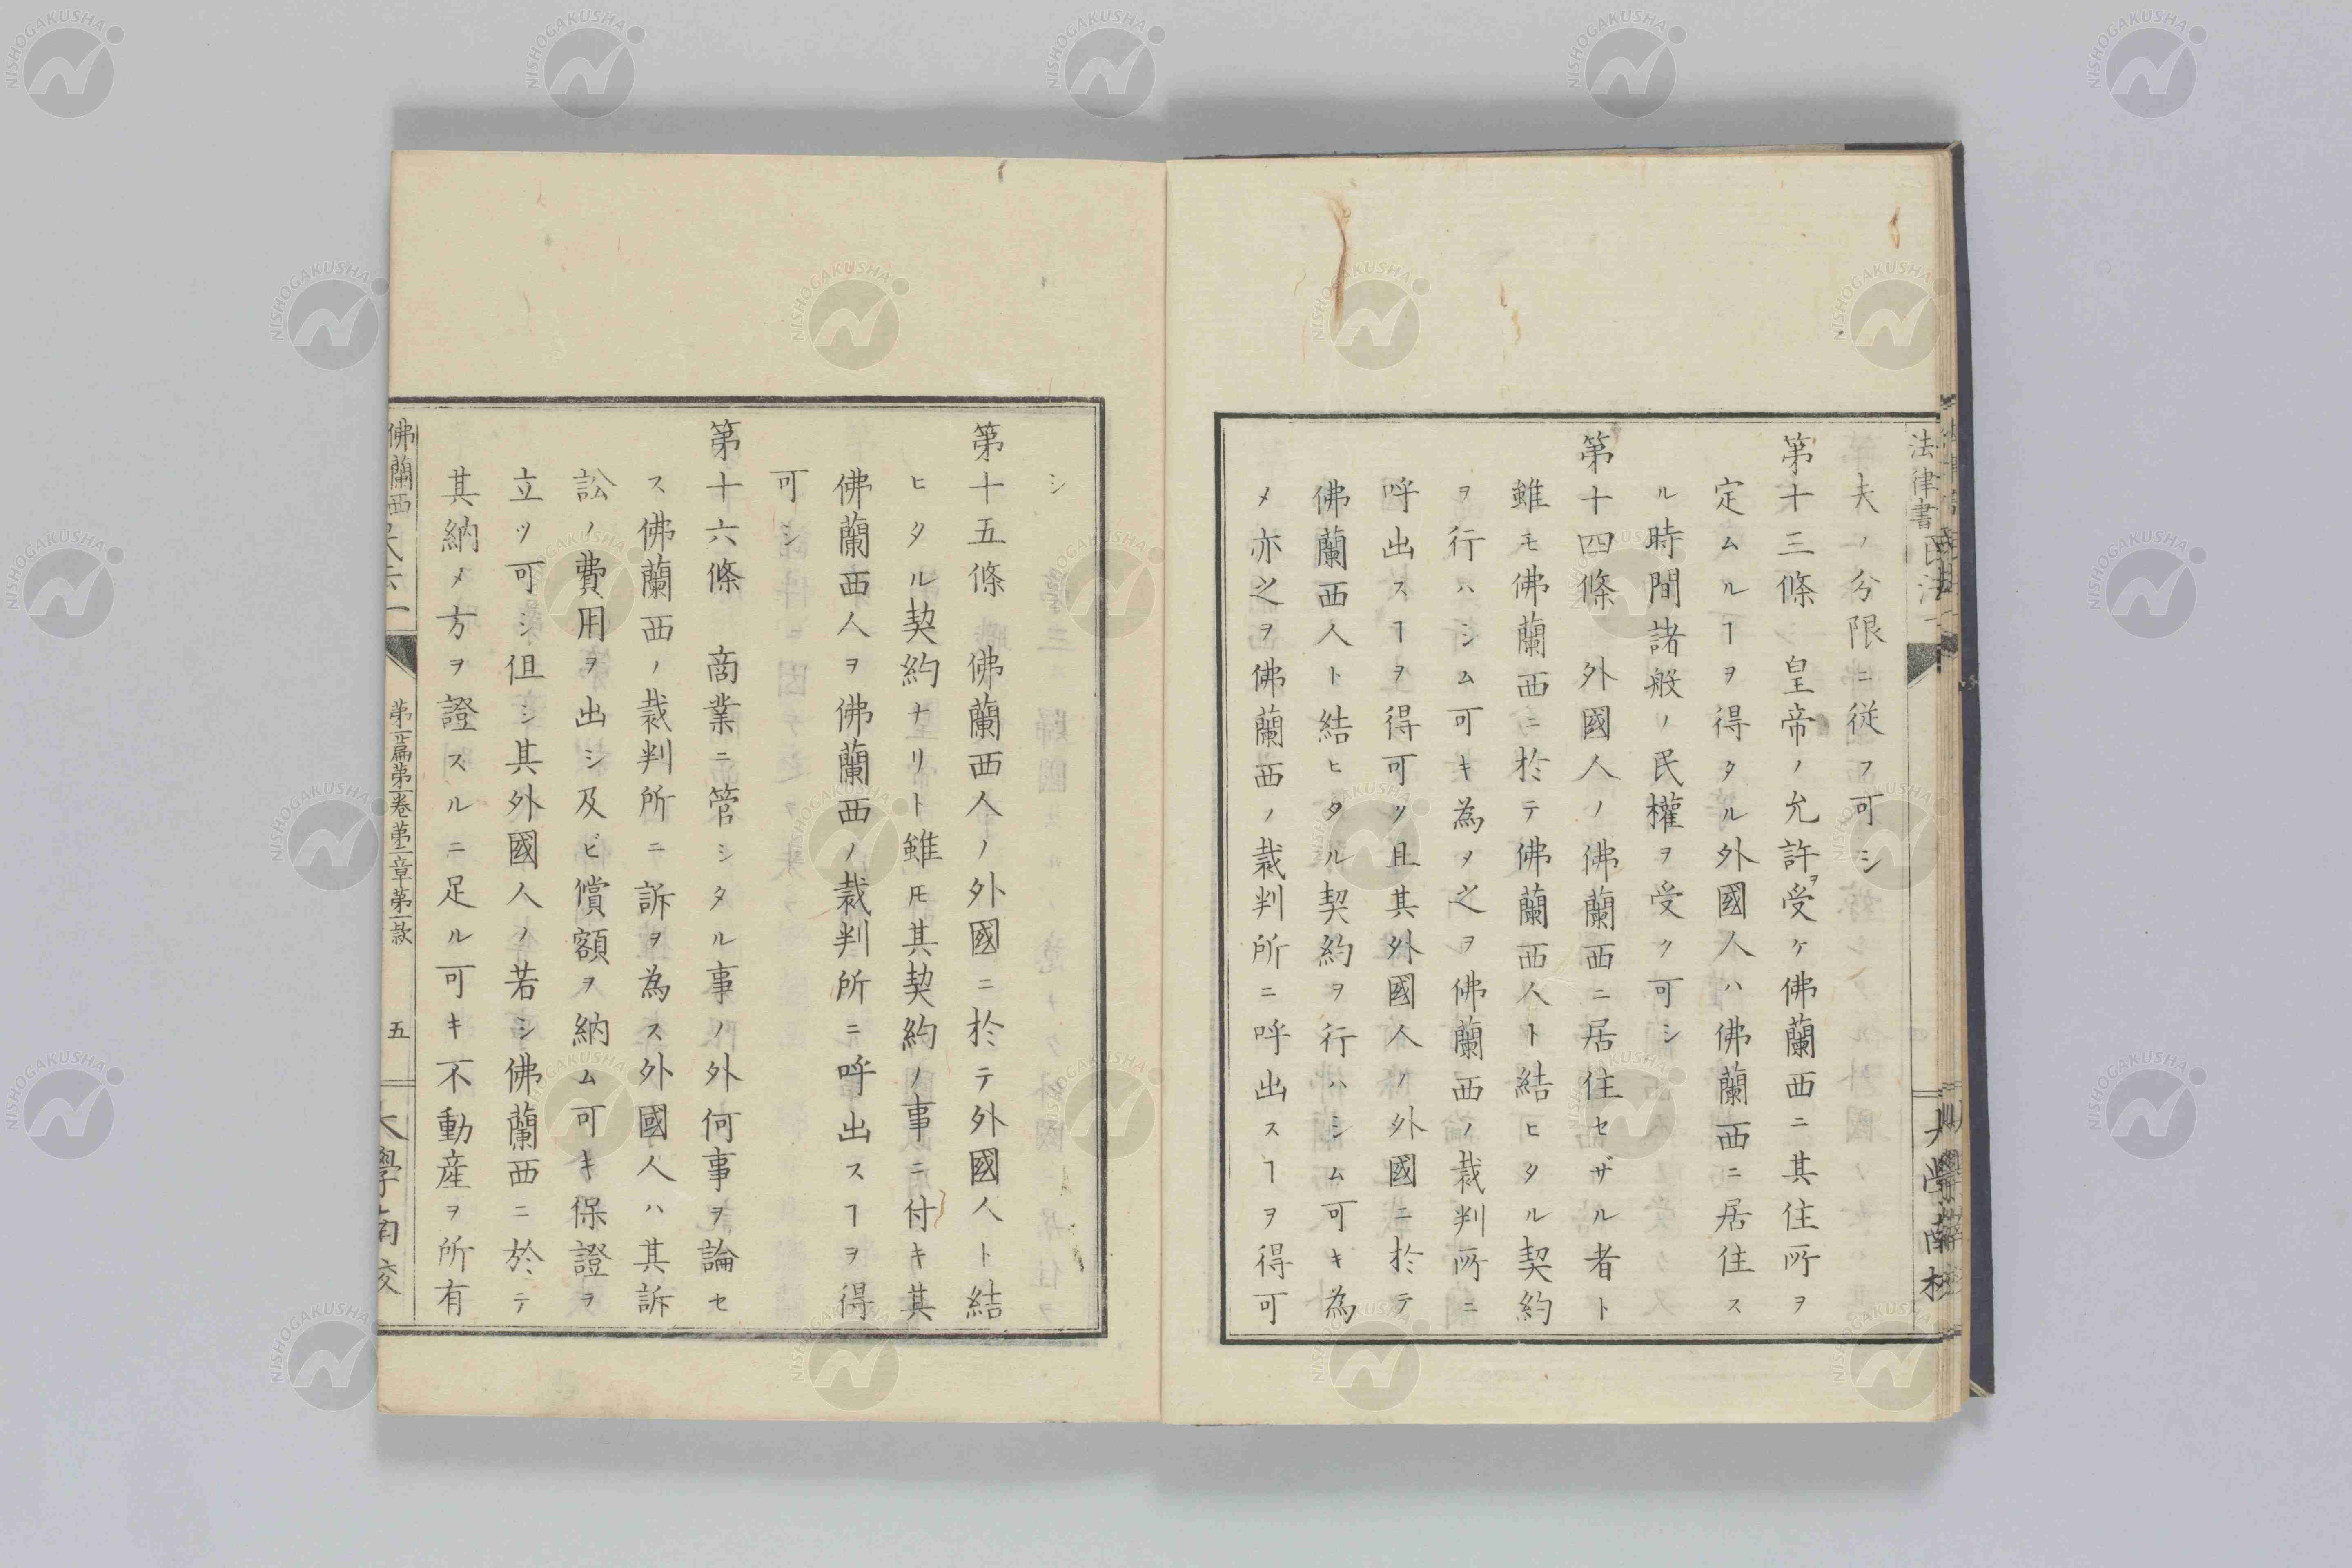 法律書
夫ノ分限ニ従フ可シ
第十三條　皇帝ノ允許ヲ受ケ佛蘭西ニ其住所ヲ
定ムルヿヲ得タル外國人ハ佛蘭西ニ居住ス
ル時間諸般ノ民權ヲ受ク可シ
第十四條　外國人ノ佛蘭西ニ居住セザル者ト
雖モ佛蘭西ニ於テ佛蘭西人ト結ヒタル契約
ヲ行ハシム可キ為メ之ヲ佛蘭西ノ裁判所ニ
呼出スヿヲ得可ク且其外國人ノ外國ニ於テ
佛蘭西人ト結ヒタル契約ヲ行ハシム可キ為
メ亦之ヲ佛蘭西ノ裁判所ニ呼出スヿヲ得可
シ
第十五條　佛蘭西人ノ外國ニ於テ外國人ト結
ヒタル契約ナリト雖𪜈其契約ノ事ニ付キ其
佛蘭西人ヲ佛蘭西ノ裁判所ニ呼出スヿヲ得
可シ
第十六條　商業ニ管シタル事ノ外何事ヲ論セ
ス佛蘭西ノ裁判所ニ訴ヲ為ス外國人ハ其訴
訟ノ費用ヲ出シ及ビ償額ヲ納ム可キ保證ヲ
立ツ可シ但シ其外國人ノ若シ佛蘭西ニ於テ
其納メ方ヲ證スルニ足ル可キ不動産ヲ所有
佛蘭西
第一篇第一卷第二章第一款
五
大學南校
NISHOGAKUSHA